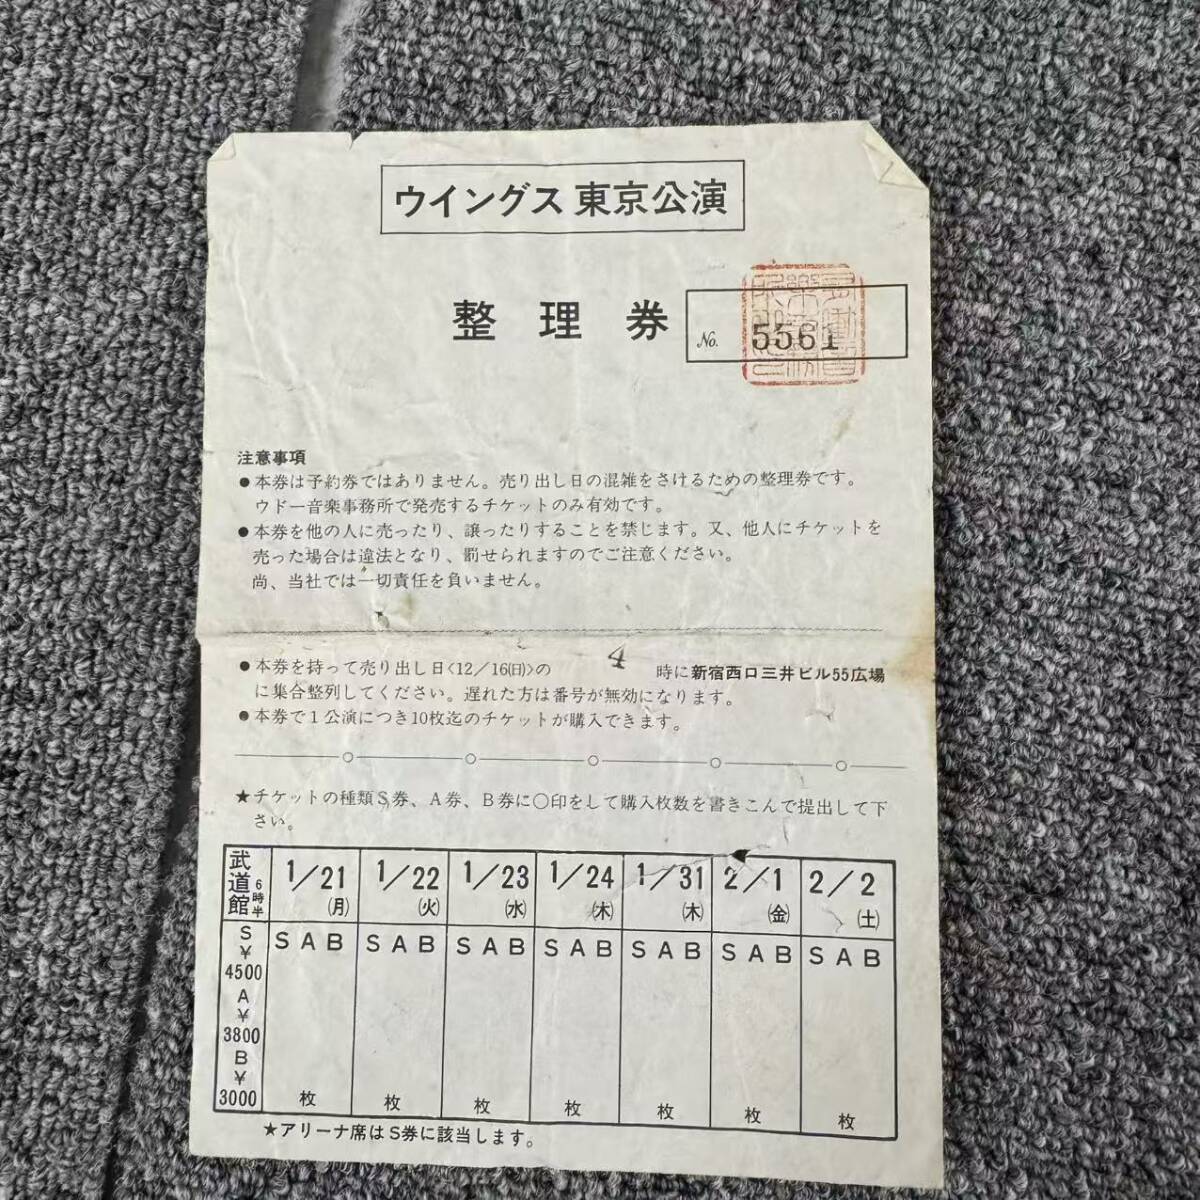 ウイングス 東京公演
整理券
No. 5561
注意事項
●本券は予約券ではありません。売り出し日の混雑をさけるための整理券です。
ウドー音楽事務所で発売するチケットのみ有効です。
●本券を他の人に売ったり、譲ったりすることを禁じます。又、他人にチケットを
売った場合は違法となり、罰せられますのでご注意ください。
尚、当社では一切責任を負いません。
●本券を持って売り出し日<12/16(日)>の 4 時に新宿西口三井ビル55広場
に集合整列してください。遅れた方は番号が無効になります。
●本券で1公演につき10枚迄のチケットが購入できます。
★チケットの種類S券、A券、B券に○印をして購入枚数を書きこんで提出して下
さい。
武道館 6時半 1/21(月) 1/22(火) 1/23(水) 1/24(木) 1/31(木) 2/1(金) 2/2(土)
S¥4500 A¥3800 B¥3000
SAB SAB SAB SAB SAB SAB SAB
枚 枚 枚 枚 枚 枚 枚
★アリーナ席はS券に該当します。